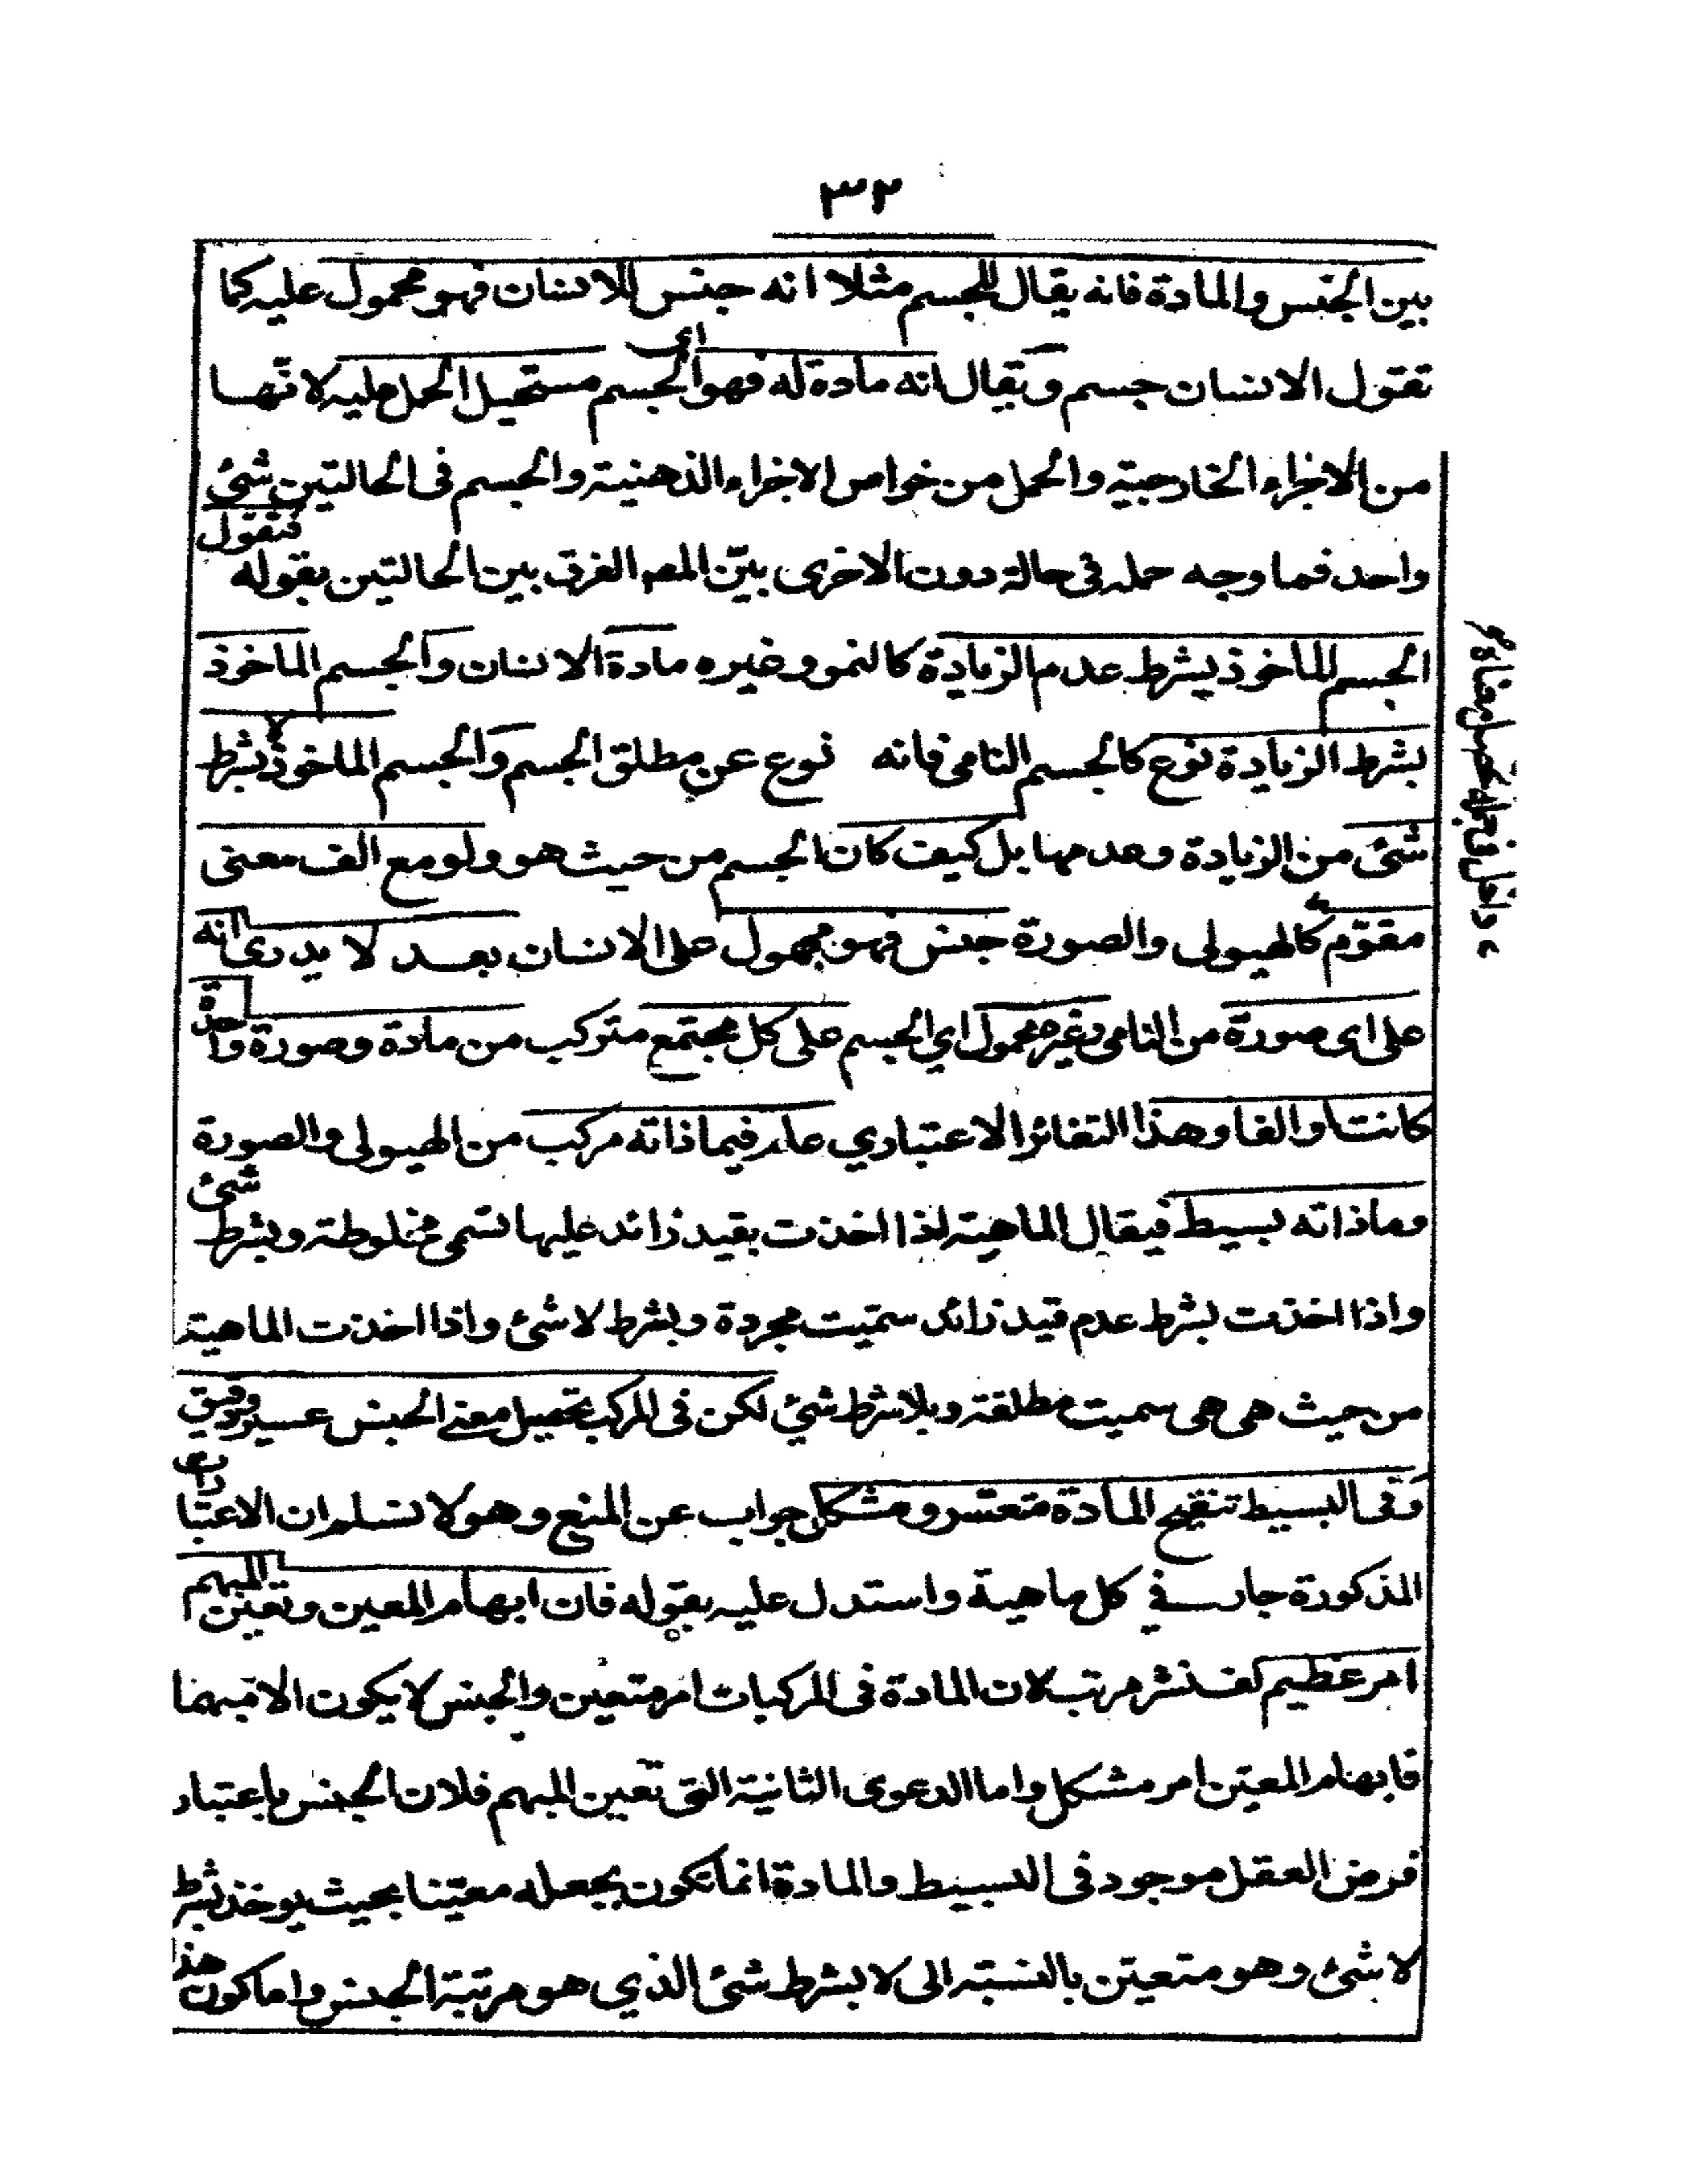 ٣٢
بين الجنس والمادة فانه يقال للجسم مثلا انه جنس للانسان فهو محمول عليه كما
تقول الانسان جسم ويقال انه مادة له فهو اى الجسم مستحيل الحمل عليه لانها
من الاجزاء الخارجية والحمل من خواص الاجزاء الذهنية والجسم فى الحالتين شئ
واحد فما وجه حمله فى حالة دون الاخرى بيّن المصـ الفرق بين الحالتين بقوله فنقول
الجسم الماخوذ بشرط عدم الزيادة كالنمو وغيره مادة الانسان والجسم الماخوذ
بشرط الزيادة نوع كالجسم النامى فانه نوع عن مطلق الجسم والجسم الماخوذ لا بشرط
شئ من الزيادة وعدمها بل كيف كان الجسم من حيث هو ولو مع الف معنى
مقوّم كالهيولى والصورة جنس فهو مجهول على الانسان بعد لا يدرى انه
على اى صورة من النامى وغيره محمول اي الجسم على كل مجتمع متركب من مادة وصورة واحدة
كانت او الفا وهذا التغائر الاعتباري عام فيما ذاته مركب من الهيولى والصورة
وما ذاته بسيط فيقال الماهية اذا اخذت بقيد زائد عليها تسمى مخلوطة وبشرط شئ
واذا اخذت بشرط عدم قيد زائد سمّيت مجردة وبشرط لا شئ واذا اخذت الماهية
من حيث هى هى سميت مطلقة وبلا شرط شئ لكن فى المركب تحصيل معنى الجنس عسير ودقيق
وفى البسيط تنقيح المادة متعسر ومشكل جواب عن المنع وهو لا نسلم ان الاعتبارات
المذكورة جار في كل ماهية واستدل عليه بقوله فان ابهام المعين وتعين المبهم
امر عظيم لف نشر مرتب لان المادة فى المركبات امر متعين والجنس لا يكون الا مبهما
فابهام المعين امر مشكل واما الدعوى الثانية التى تعين المبهم فلان الجنس باعتبار
فرض العقل موجود فى البسيط والمادة انما تكون بجعله معينا بحيث يوخذ بشرط
لا شئ وهو متعين بالنسبة الى لا بشرط شئ الذي هو مرتبة الجنس واما كون هذا